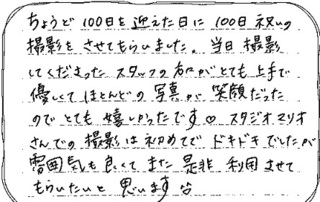 ちょうど100日を迎えた日に100日祝いの
撮影をさせてもらいました。当日撮影
してくださった スタッフの方がとても上手で
優しくてほとんどの写真が笑顔だった
のでとても嬉しかったです♡ スタジオマリオ
さんでの撮影は初めてでドキドキでしたが
雰囲気も良くてまた是非利用させて
もらいたいと思います